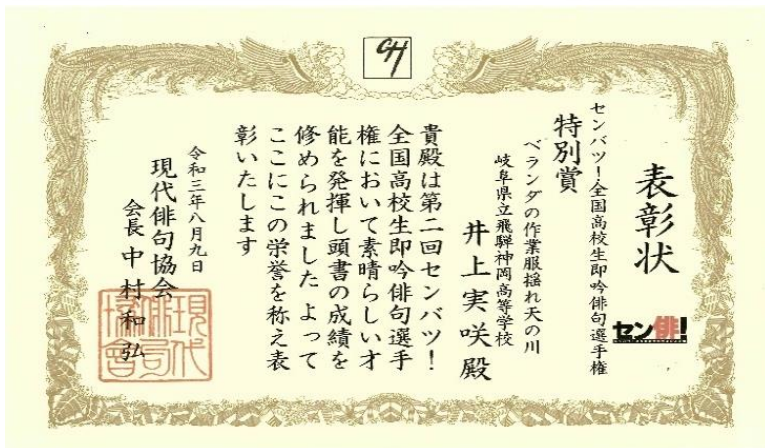 GH
表彰状
セン俳!
センバツ!全国高校生即吟俳句選手権
特別賞
ベランダの作業服揺れ天の川
岐阜県立飛騨神岡高等学校
井上実咲殿
貴殿は第二回センバツ!
全国高校生即吟俳句選手
権において素晴らしい才
能を発揮し頭書の成績を
修められました よって
ここにこの栄誉を称え表
彰いたします
令和三年八月九日
現代俳句協会
会長 中村和弘
現代
俳句
協會